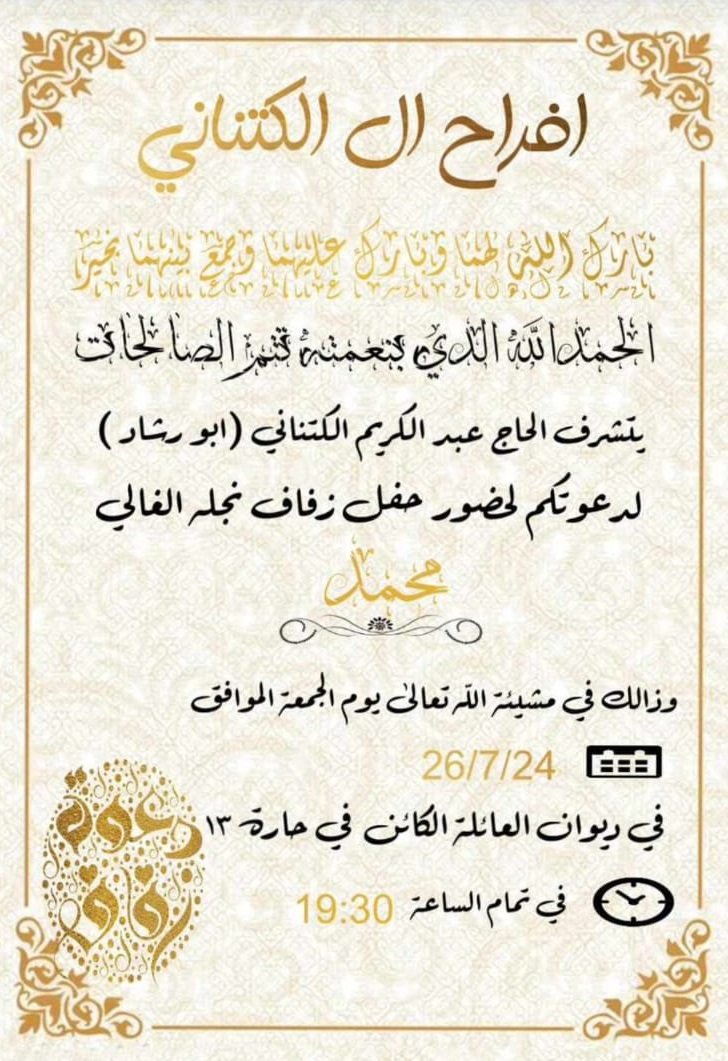 افراح ال الكتناني
بارك الله لهما وبارك عليهما وجمع بينهما بخير
الحمدالله الذي بنعمته تتم الصالحات
يتشرف الحاج عبد الكريم الكتناني (ابو رشاد)
لدعوتكم لحضور حفل زفاف نجله الغالي
محمد
وذالك في مشيئة الله تعالى يوم الجمعة الموافق
26/7/24
في ديوان العائلة الكائن في حارة ١٣
في تمام الساعة 19:30
دعوة
زفاف